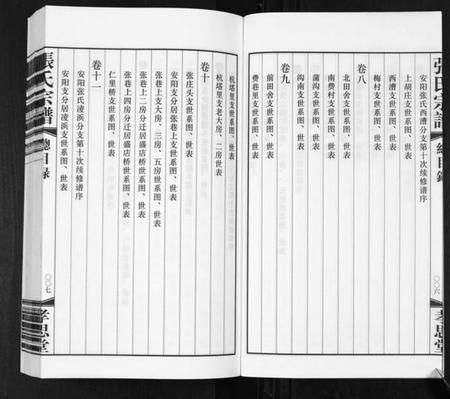 張氏宗譜
總目錄
〇〇六
孝思堂
安阳张氏西漕分支第十次续修谱序
上胡庄支世系图、世表
西漕支世系图、世表
梅村支世系图、世表
卷八
北田舍支世系图、世表
南费村支世系图、世表
蒲沟支世系图、世表
沟南支世系图、世表
卷九
前田舍支世系图、世表
费巷里支世系图、世表
杭塔里支世系图、世表
杭塔里支老大房、二房世表
卷十
张庄头支世系图、世表
安阳支分居张巷上支世系图、世表
张巷上支大房、三房、五房世系图、世表
张巷上二房分迁居盛店桥世系图、世表
张巷上四房分迁居盛店桥世系图、世表
仁里桥支世系图、世表
卷十一
安阳张氏凌浜分支第十次续修谱序
安阳支分居凌浜支世系图、世表
張氏宗譜
總目錄
〇〇七
孝思堂